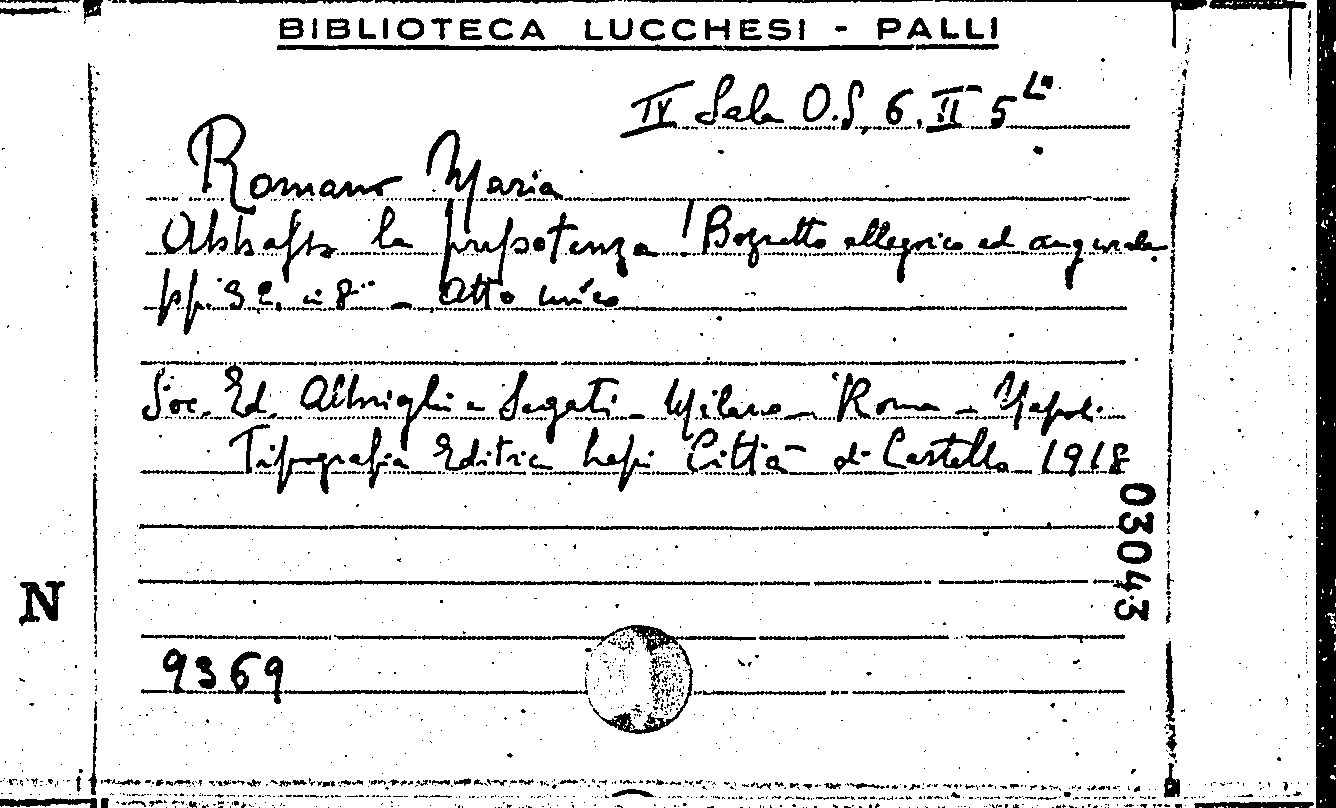 BIBLIOTECA LUCCHESI - PALLI
IV Sala O.S. 6. II 5
Romano Maria
Abbasso la prepotenza! Bozzetto allegorico ed
pp. 32. in 8° - Atto unico
Soc. Ed. Albrighi e Segati - Milano - Roma - Napoli
Tipografia Editrice Lapi Città di Castello 1918
03043
N
9369